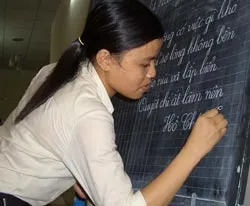 có việc gì
lòng không bền
núi và lấp biển
Quyết chí ắt làm nên
Hồ